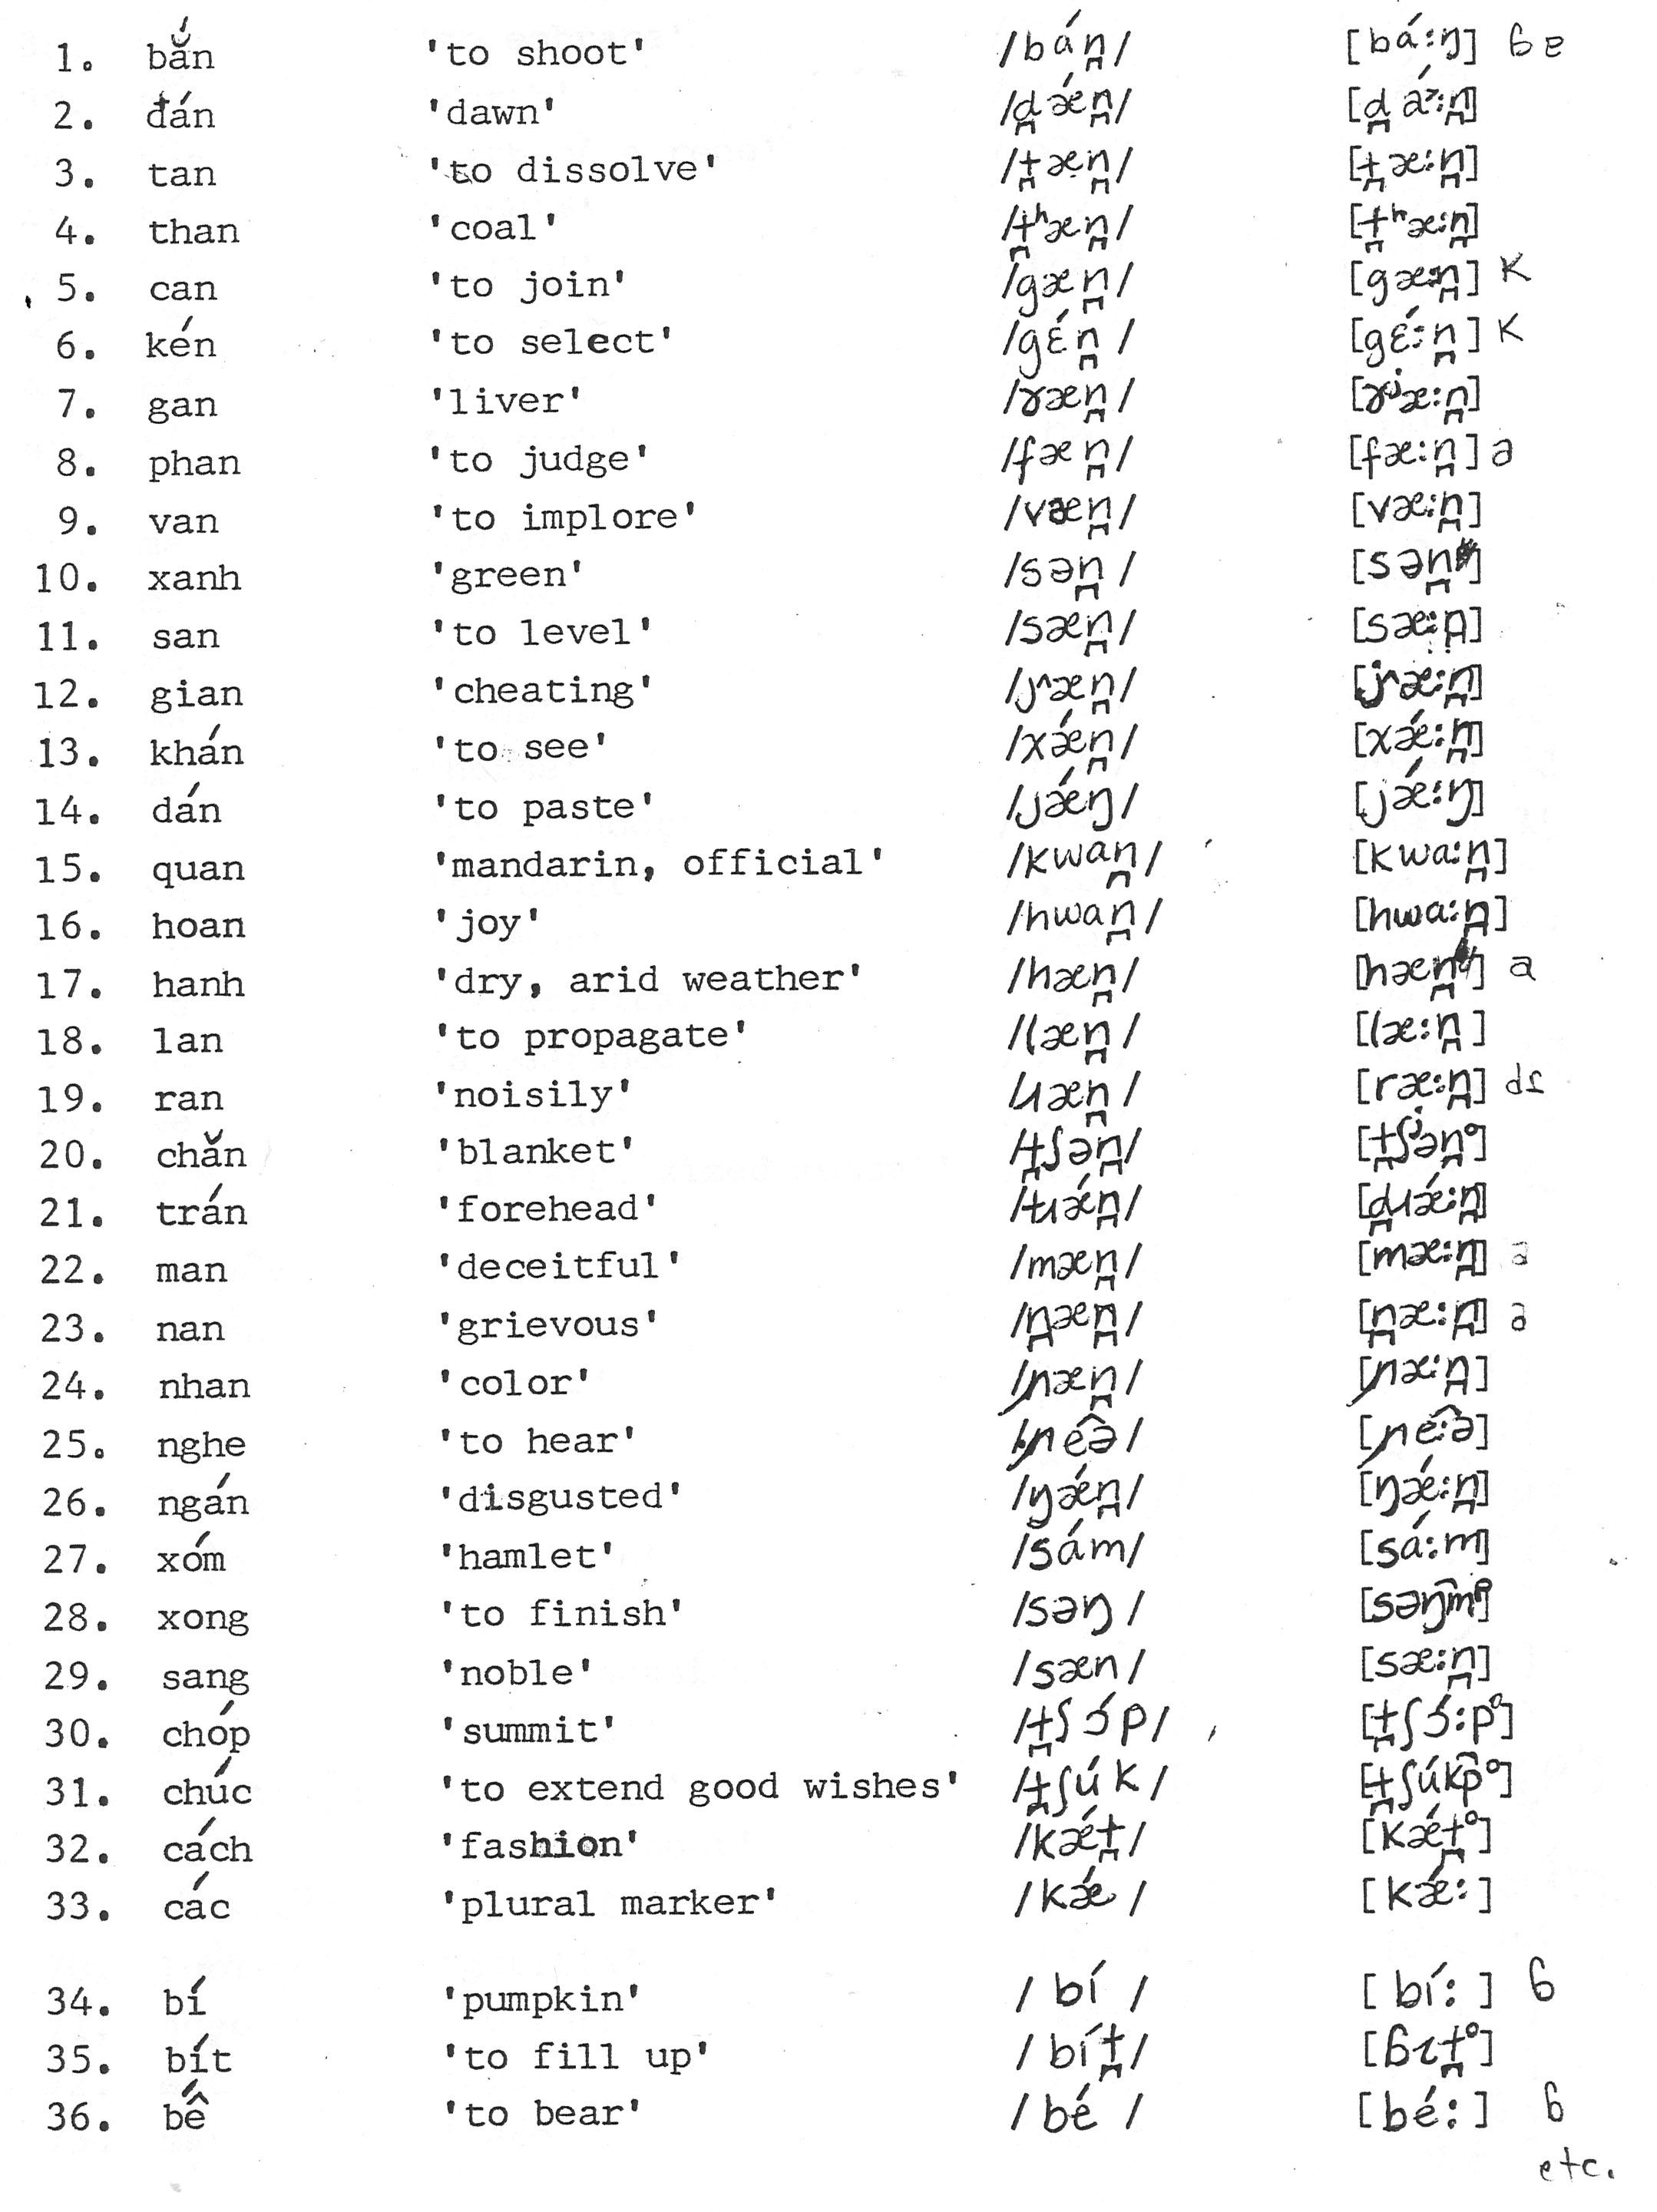 1. bắn 'to shoot' /bán̪/ [bá:ŋ] ɓ ɐ
2. đán 'dawn' /d̪ǽn̪/ [d̪á:n̪]
3. tan 'to dissolve' /t̪æn̪/ [t̪æ:n̪]
4. than 'coal' /t̪ʰæn̪/ [t̪ʰæ:n̪]
5. can 'to join' /gæn̪/ [gæ:n̪] K
6. kén 'to select' /gɛ́n̪/ [gɛ́:n̪] K
7. gan 'liver' /ɤæn̪/ [ɤʲæ:n̪]
8. phan 'to judge' /fæn̪/ [fæ:n̪] a
9. van 'to implore' /væn̪/ [væ:n̪]
10. xanh 'green' /sən̪/ [sən̪]
11. san 'to level' /sæn̪/ [sæ:n̪]
12. gian 'cheating' /ȷ^æn̪/ [j^æ:n̪]
13. khán 'to see' /xǽn̪/ [xǽ:n̪]
14. dán 'to paste' /jǽŋ/ [jǽ:ŋ]
15. quan 'mandarin, official' /kwan̪/ [kwa:n̪]
16. hoan 'joy' /hwan̪/ [hwa:n̪]
17. hanh 'dry, arid weather' /hæn̪/ [hæn̪] a
18. lan 'to propagate' /læn̪/ [læ:n̪]
19. ran 'noisily' /ɹæn̪/ [ræ:n̪]
20. chăn 'blanket' /t̪ʃən̪/ [t̪ʃʲən̪°]
21. trán 'forehead' /tɹǽn̪/ [d̪ɹǽ:n̪]
22. man 'deceitful' /mæn̪/ [mæ:n̪] a
23. nan 'grievous' /n̪æn̪/ [n̪æ:n̪] a
24. nhan 'color' /ɲæn̪/ [ɲæ:n̪]
25. nghe 'to hear' /ɲe͡ə/ [ɲe:͡ə]
26. ngán 'disgusted' /ŋǽn̪/ [ŋǽ:n̪]
27. xóm 'hamlet' /sám/ [sá:m]
28. xong 'to finish' /səŋ/ [səŋ͡m°]
29. sang 'noble' /sæn/ [sæ:n̪]
30. chóp 'summit' /t̪ʃɔ́p/ [t̪ʃɔ́:p°]
31. chúc 'to extend good wishes' /t̪ʃúk/ [t̪ʃúk͡p°]
32. cách 'fashion' /kǽt̪/ [kǽt̪°]
33. các 'plural marker' /kǽ/ [kǽ:]
34. bí 'pumpkin' /bí/ [bí:] ɓ
35. bít 'to fill up' /bít̪/ [ɓɪt̪°]
36. bế 'to bear' /bé/ [bé:] ɓ
etc.